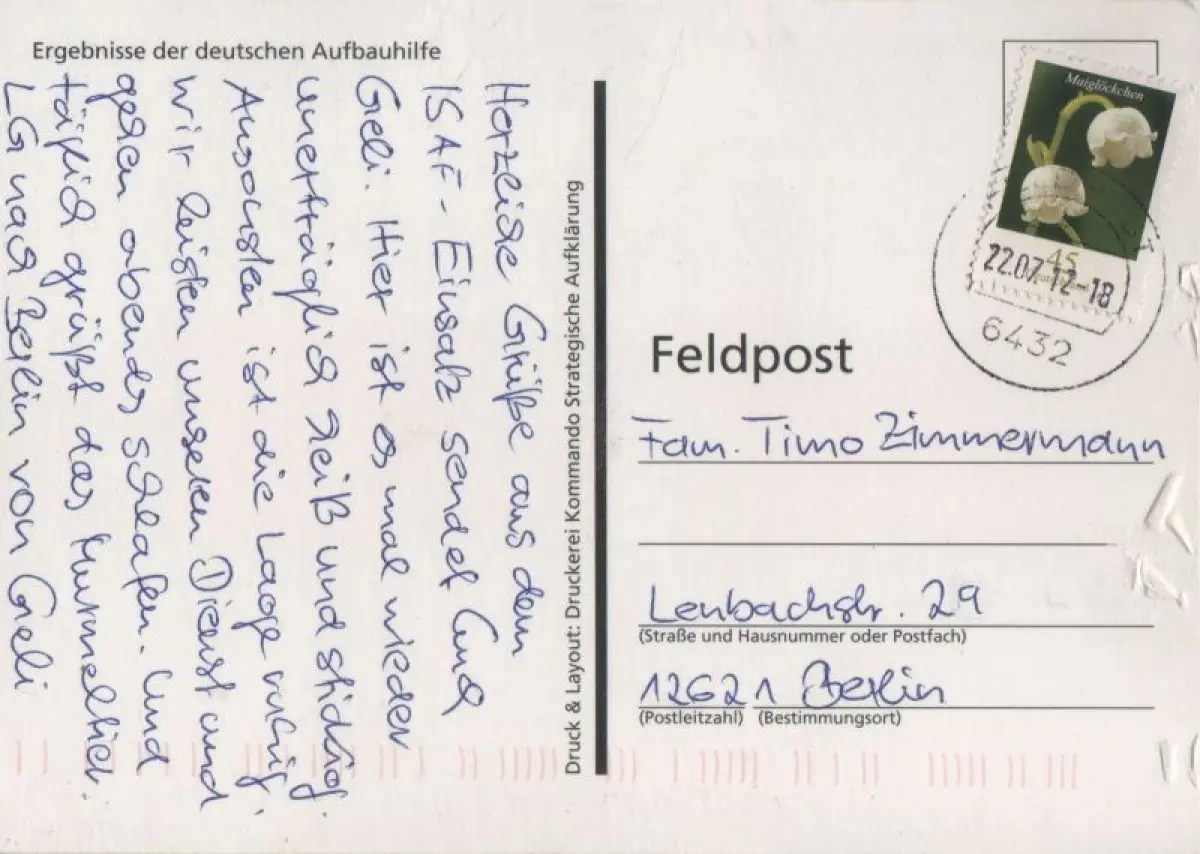 Ergebnisse der deutschen Aufbauhilfe
Herzliche Grüße aus dem
ISAF-Einsatz sendet Euch
Geli. Hier ist es mal wieder
unerträglich heiß und stickig.
Ansonsten ist die Lage ruhig,
wir leisten unseren Dienst und
gehen abends schlafen. Und
täglich grüßt das Murmeltier.
LG nach Berlin von Geli
Druck & Layout: Druckerei Kommando Strategische Aufklärung
Maiglöckchen
45
22.07.12-18
6432
Feldpost
Fam. Timo Zimmermann
Lenbachstr. 29
(Straße und Hausnummer oder Postfach)
12621 Berlin
(Postleitzahl) (Bestimmungsort)